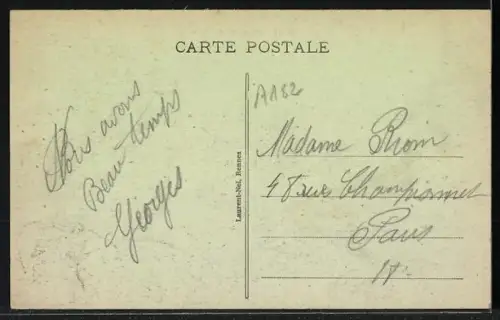 CARTE POSTALE
Nous avons
Beau temps
Georges
Laurent-Nel, Rennes
A182
Madame Riom
rue Championnet
Paris